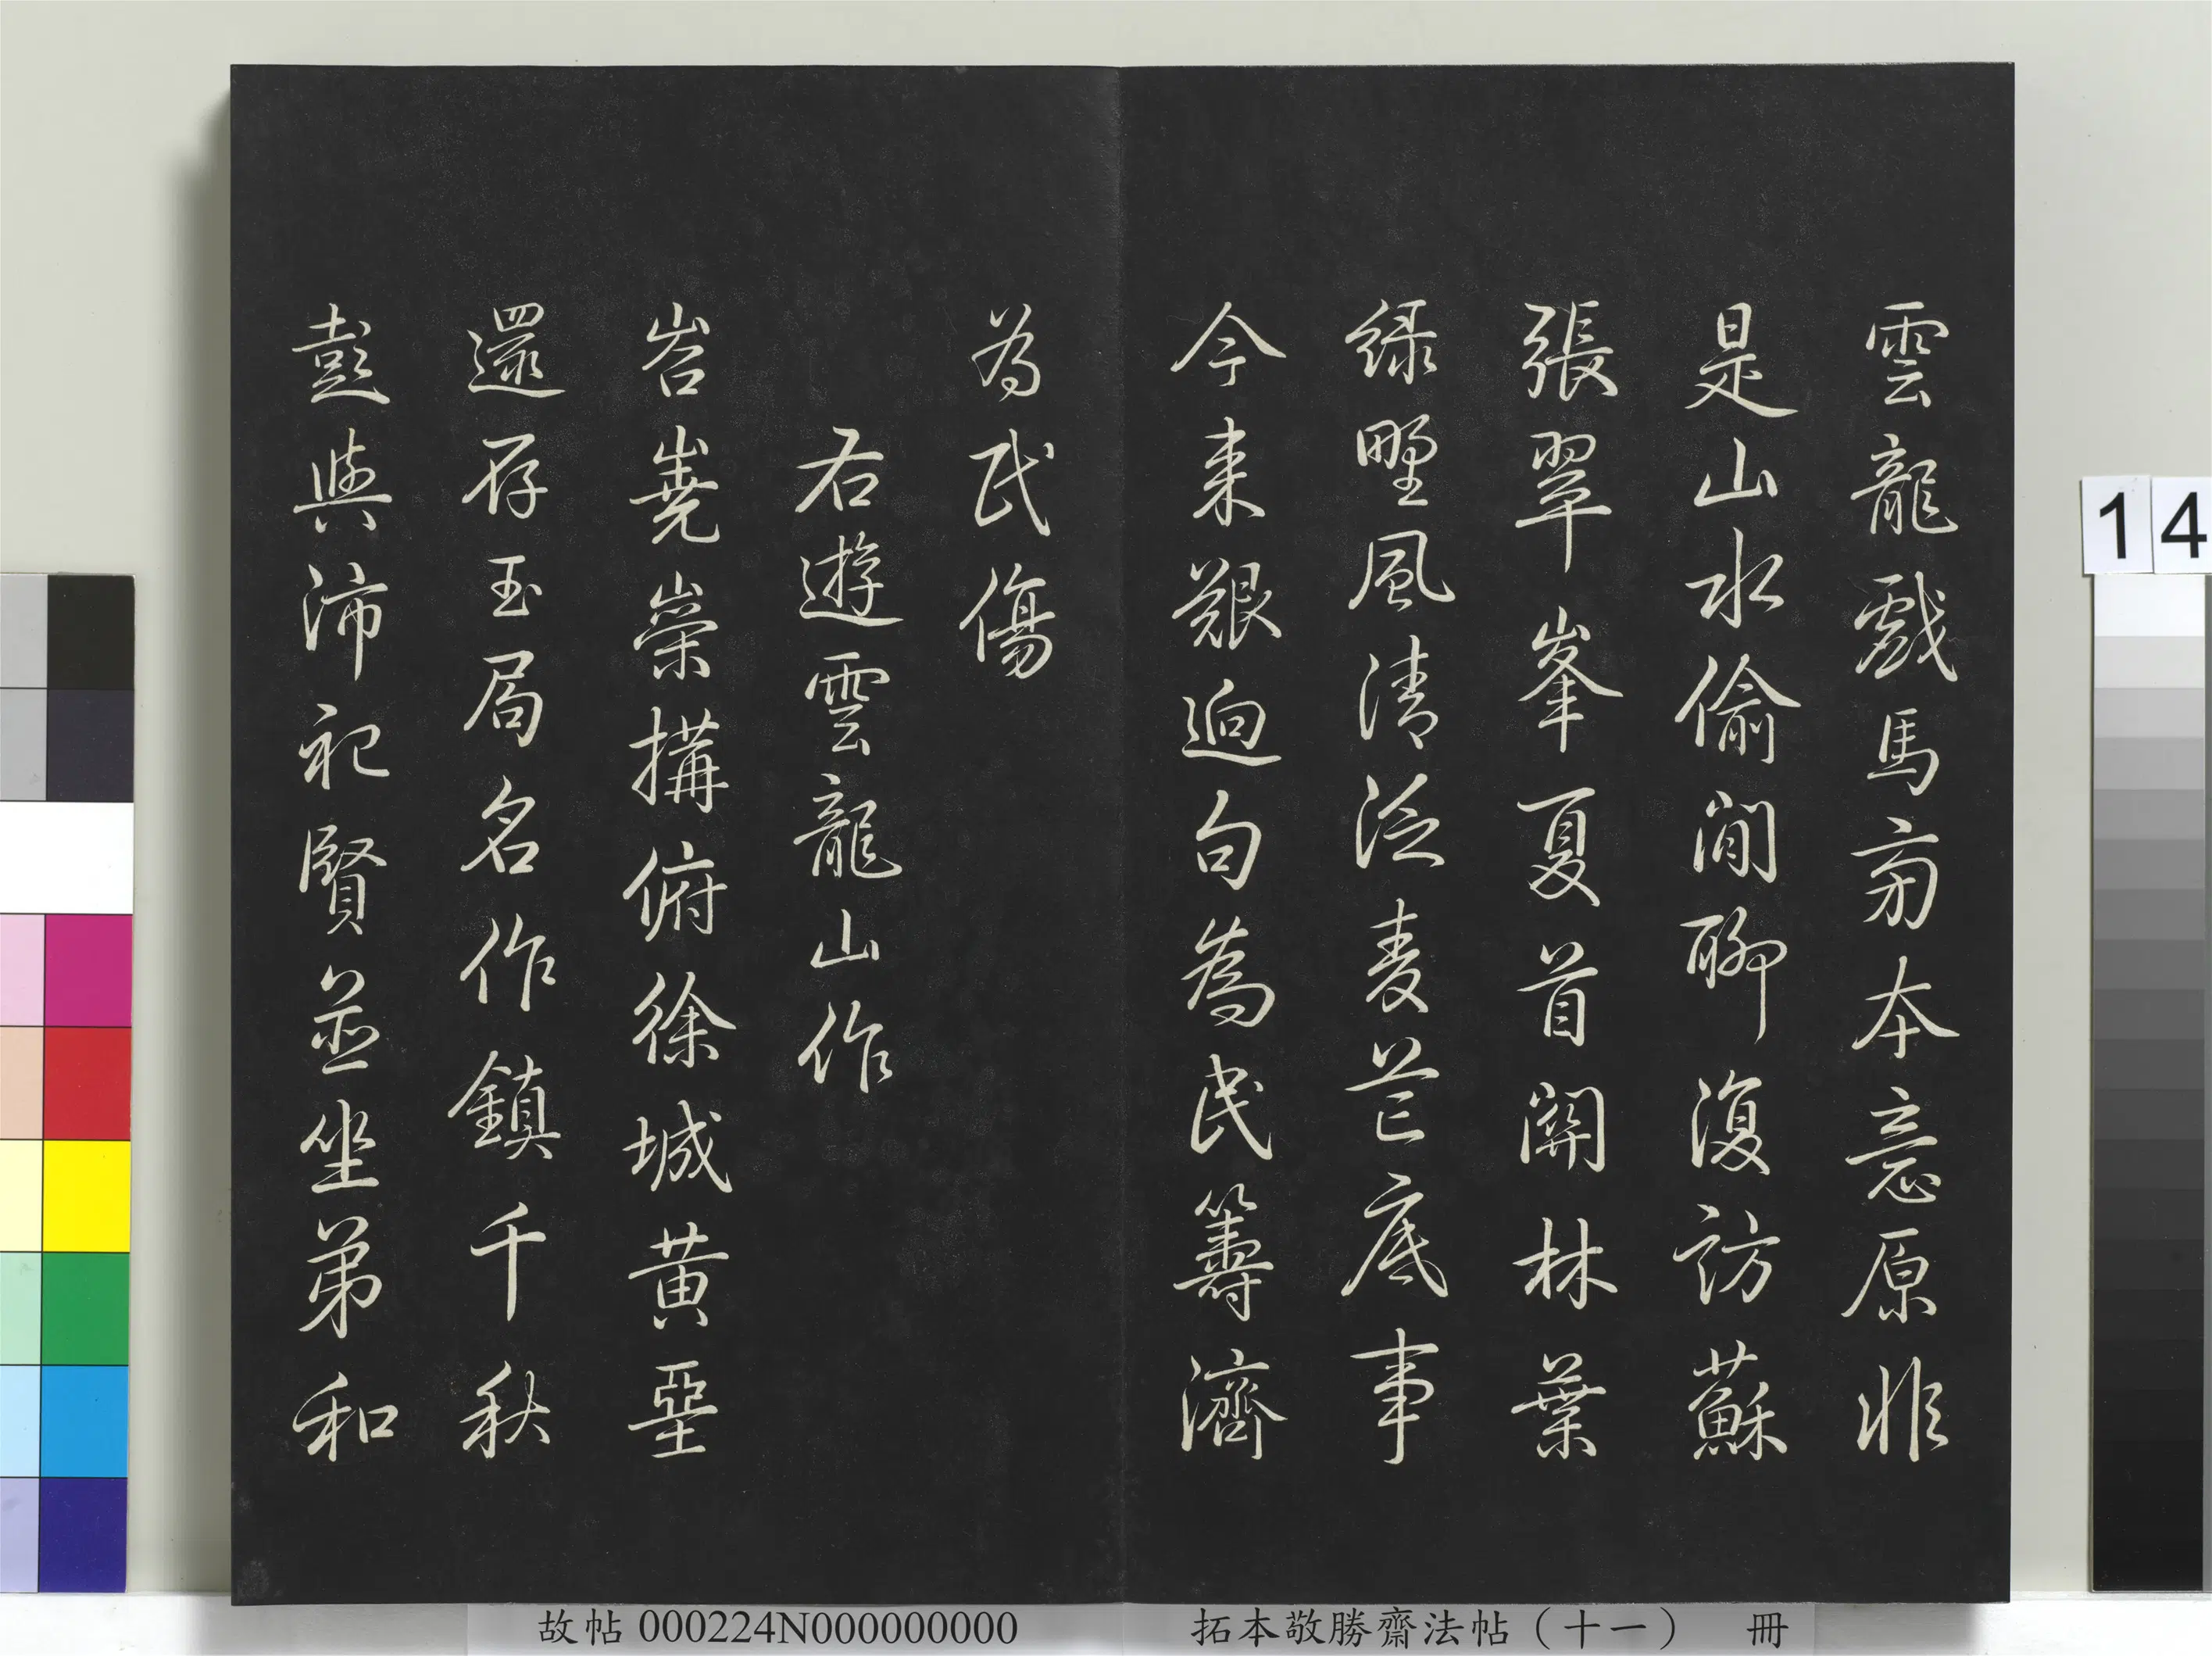 雲龍戲馬兩本意原非
是山水偷閒聊復訪蘇
張翠峯夏首開林葉
綠野風清泛麥芒底事
今來艱迥句為民籌濟
為民傷
右遊雲龍山作
岧嶤崇搆俯徐城黃堊
還存玉局名作鎮千秋
彭與沛祀賢並坐弟和
14
故帖 000224N000000000
拓本敬勝齋法帖（十一） 冊